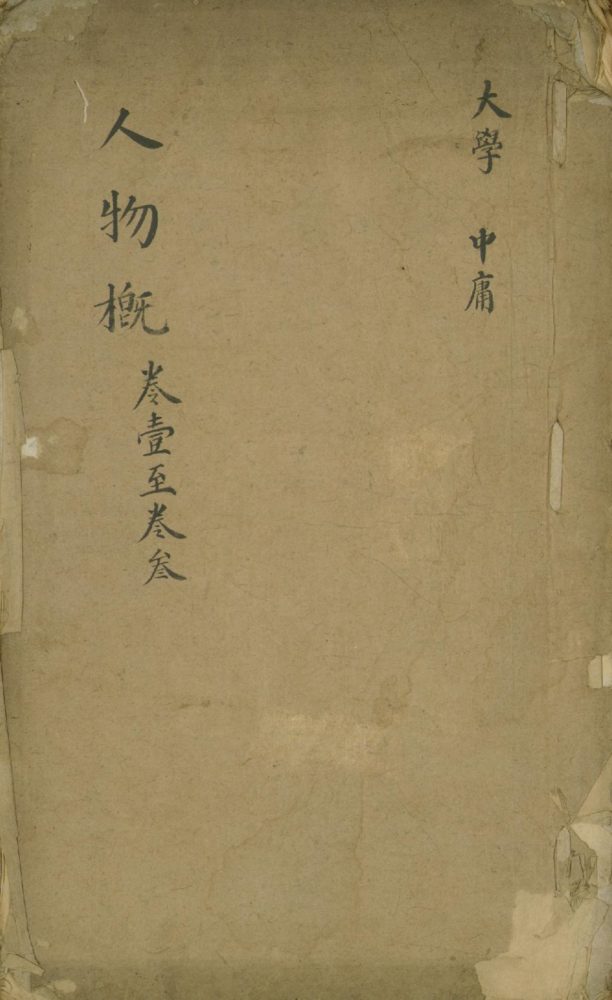 大學 中庸
人物概
卷壹至卷叄